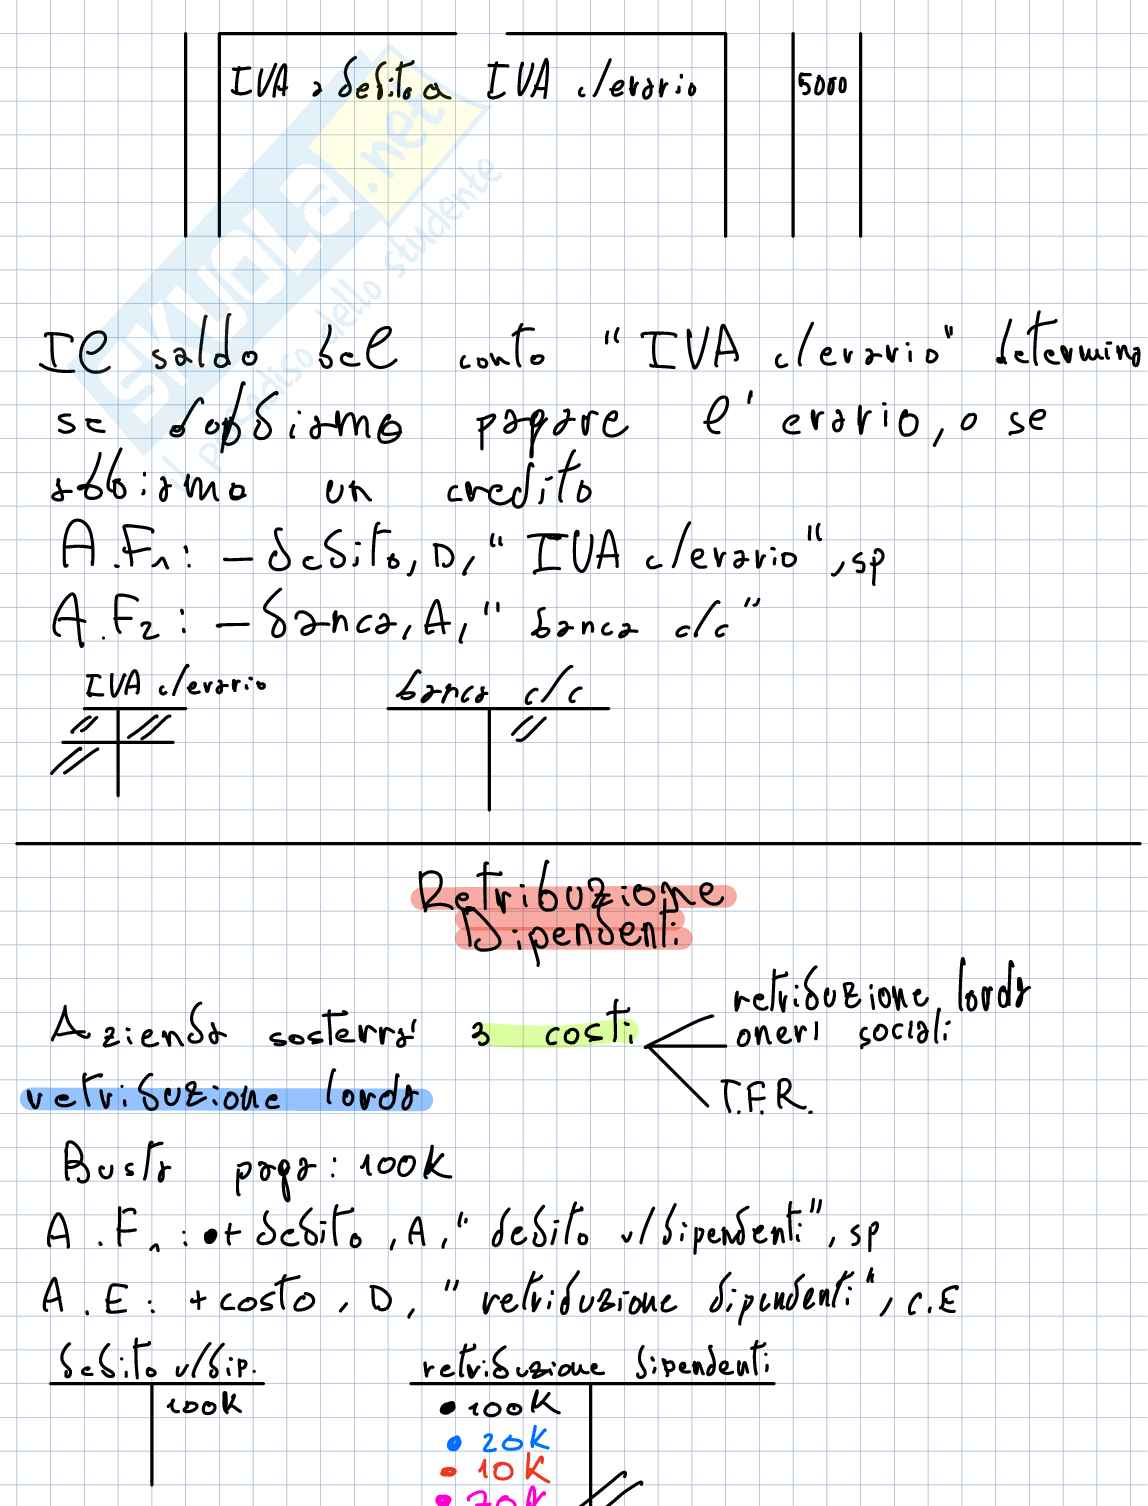 IVA a debito a IVA c/erario 5000
SKUOLA.net
il paradiso dello studente
Il saldo del conto "IVA c/erario" determina
se dobbiamo pagare l'erario, o se
abbiamo un credito
A.F1: - debito, D, "IVA c/erario", sp
A.F2: - banca, A, "banca c/c"
IVA c/erario banca c/c
Retribuzione
Dipendenti
Azienda sosterrà 3 costi
retribuzione lorda
oneri sociali
T.F.R.
retribuzione lorda
Busta paga: 100K
A.F1: + debito, A, "debito v/dipendenti", sp
A.E: + costo, D, "retribuzione dipendenti", C.E
debito v/dip. retribuzione dipendenti
100K • 100K
• 20K
• 10K
• 70K